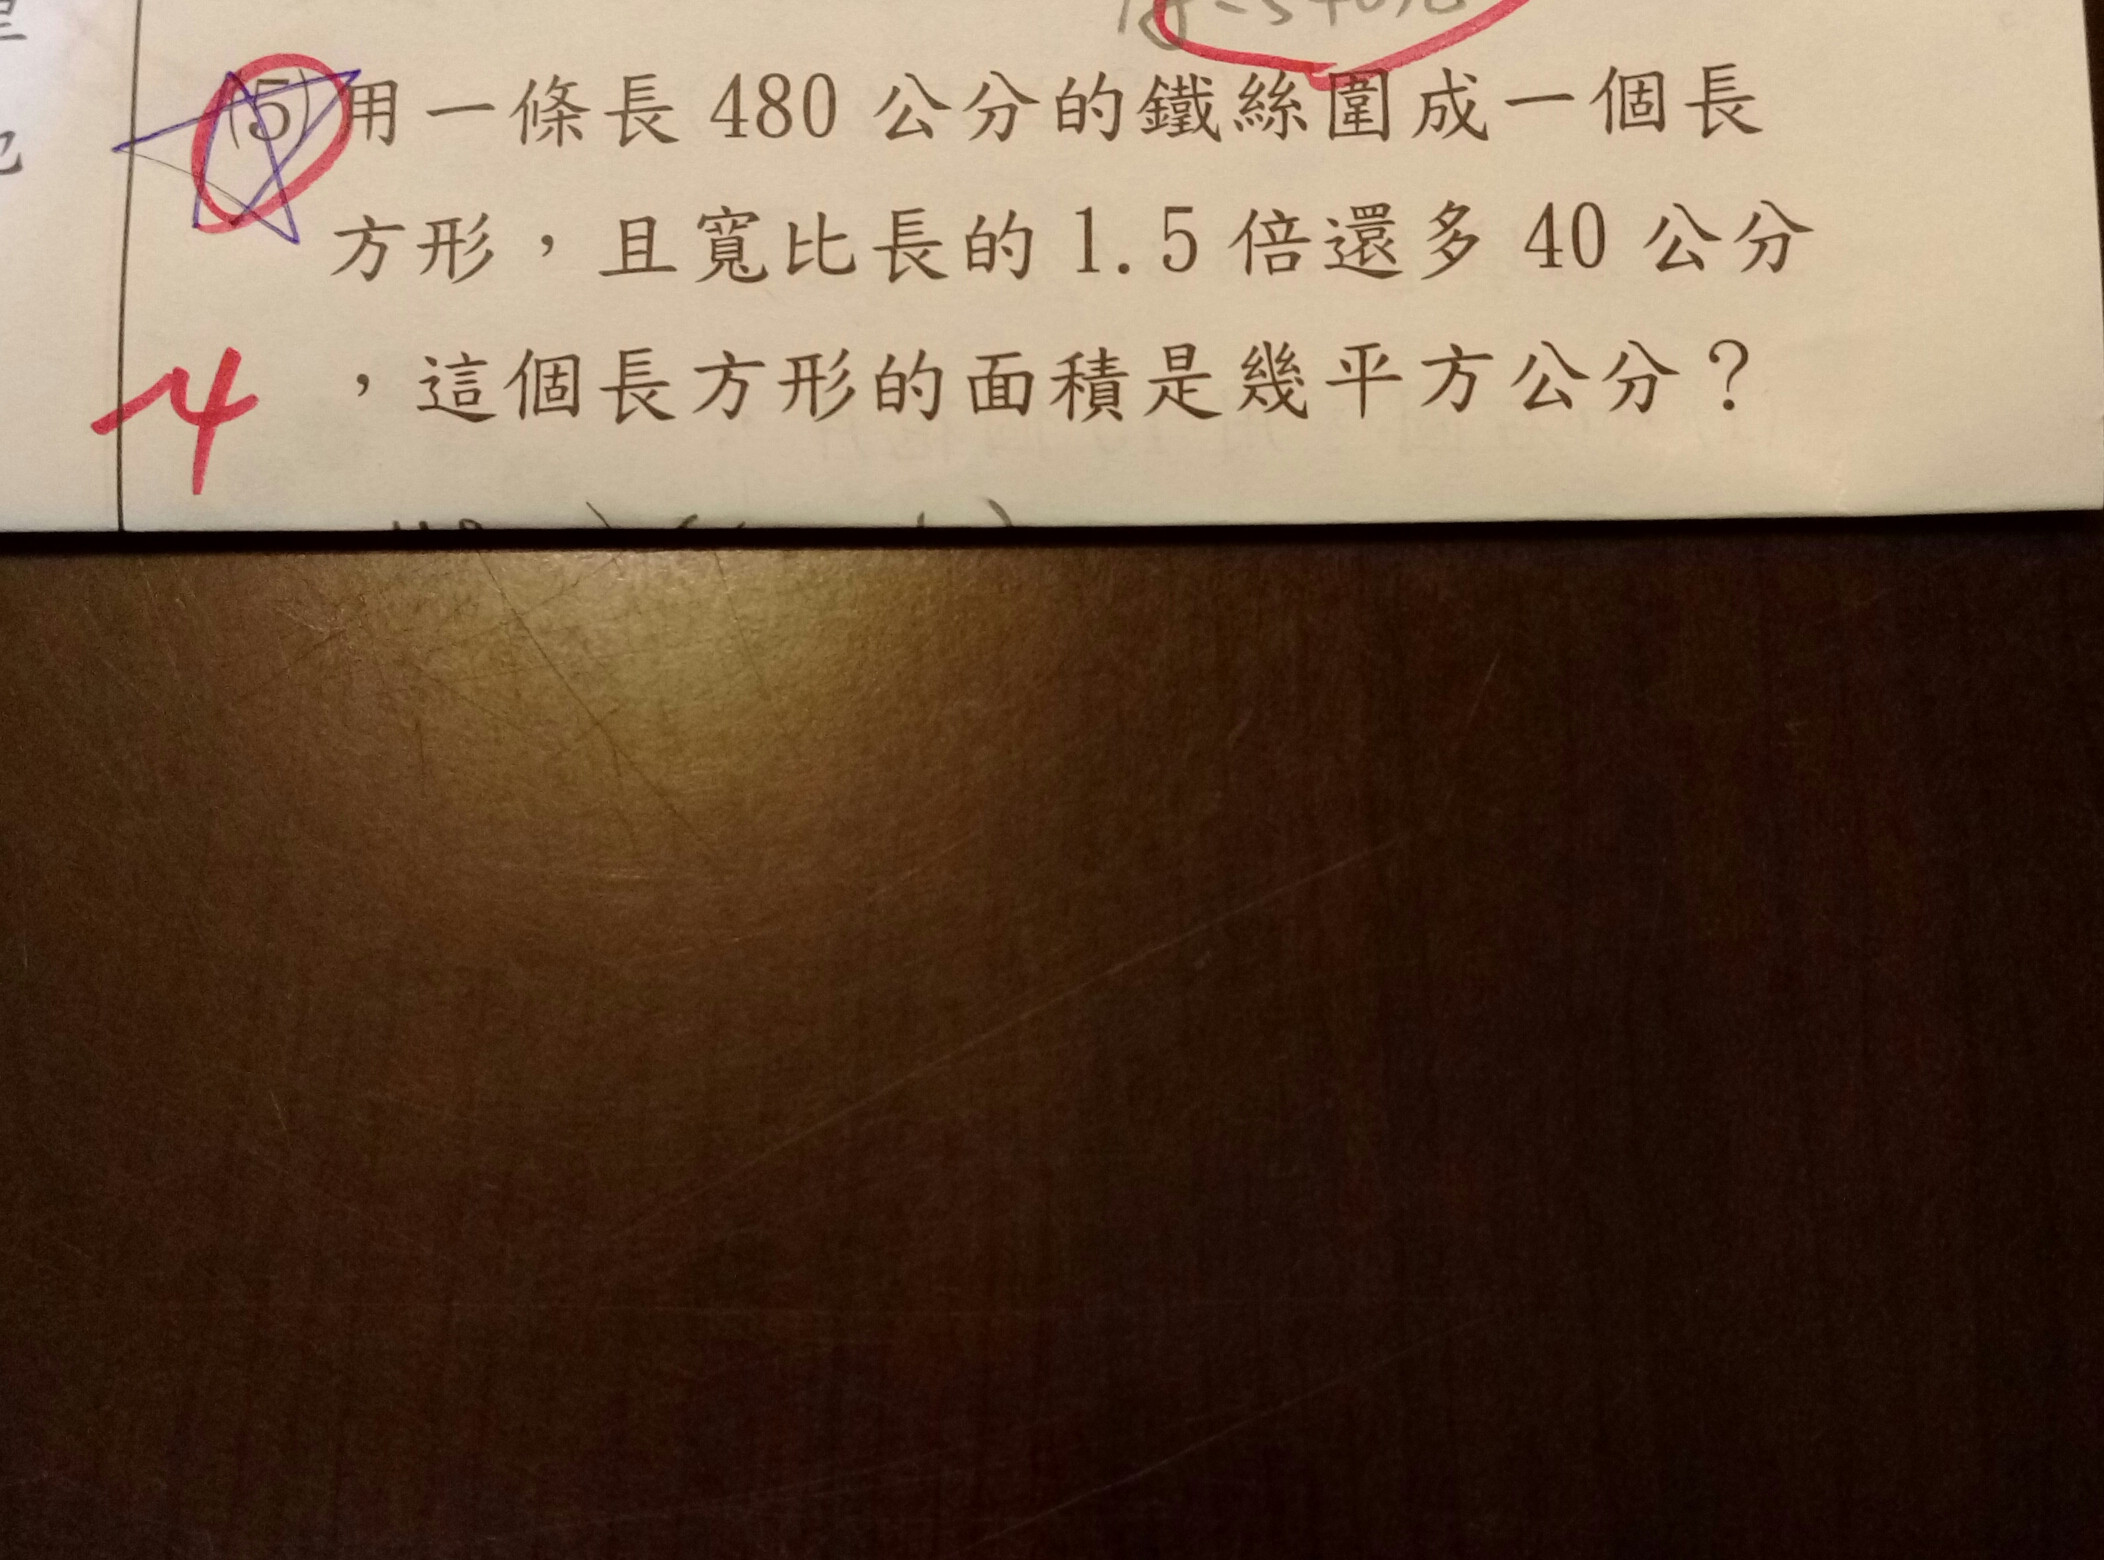 (5)用一條長 480 公分的鐵絲圍成一個長
方形，且寬比長的 1.5 倍還多 40 公分
，這個長方形的面積是幾平方公分？
-4